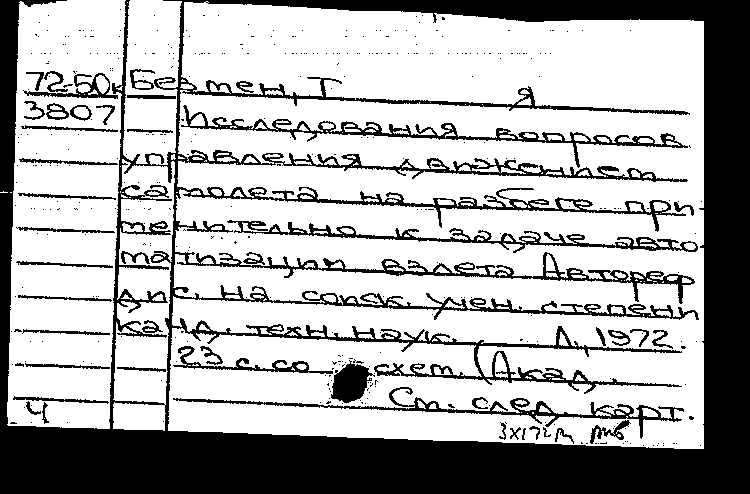 72-50к Безмен, Т Я
3807 Исследования вопросов
управления движением
самолета на разбеге при-
менительно к задаче авто-
матизации взлета Автореф
дис. на соиск. учен. степени
канд. техн. наук. Л., 1972.
23 с. со схем. (Акад.
См. след. карт.
Ч